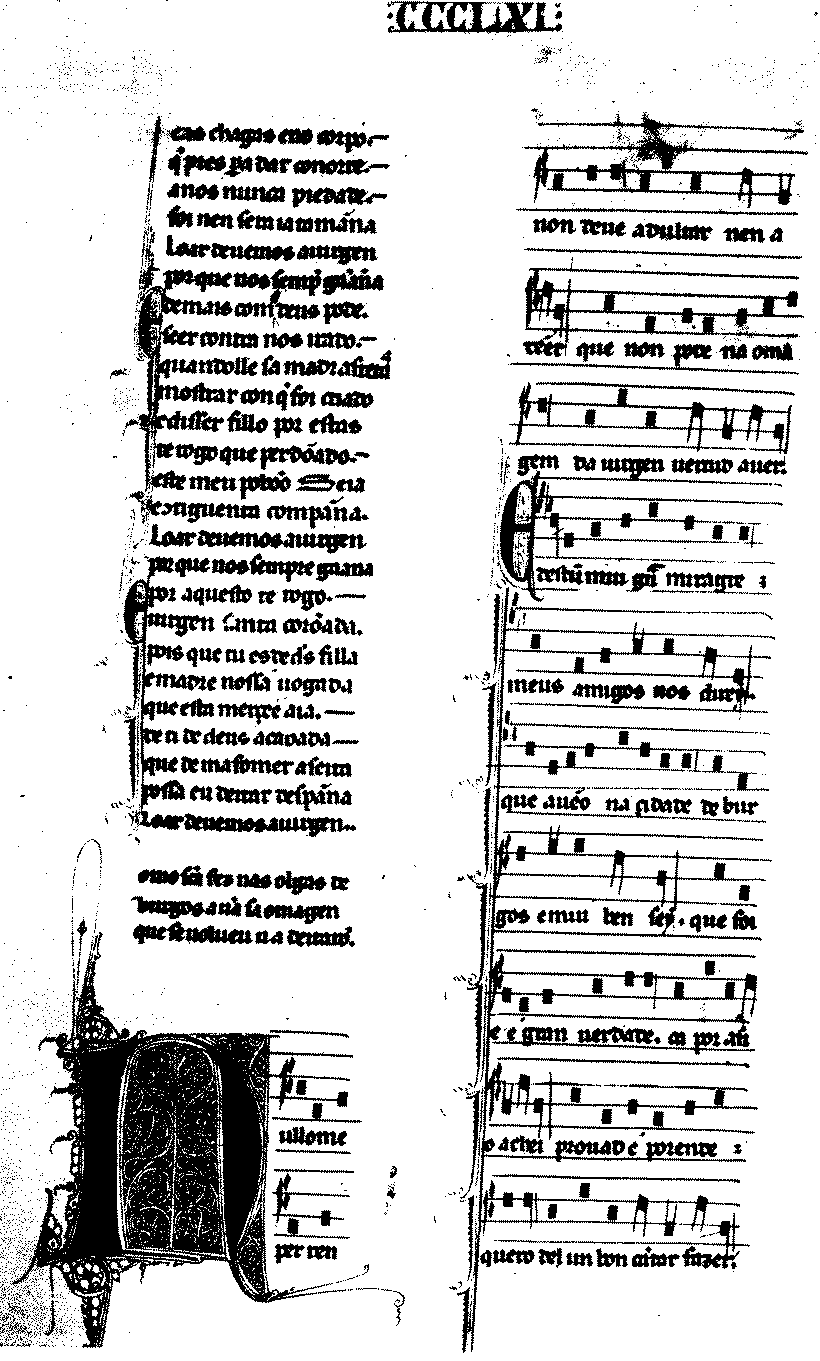 :CCCLXI:
tas chagas eno corpo.
q̇ pres pa dar conorte.
a nos nunca piedade.
foi nen fera tamanna
Loar deuemos a uirgen
por que nos semp̃ gaãna
E demais com deus pode.
seer contra nos irado.
quando lle sa madr a
mostrar con q̇ foi criado
e disser fillo por estas
te rogo que perdõado.
este meu poboo seia
e
 conpan̄a.
Loar deuemos a uirgen
por que nos sempre gaana
E por aquesto te rogo.
uirgen santa corõada.
pois que tu es de d̃s filla
e madre nossa uogada
que esta merçe aia.
de ti de deus acabada
que de mafomet a seita
possa eu deitar despan̄a
Loar deuemos a uirgen.
fez nas olgas de
burgos a ũa sa omagen
que se uolueu na
Null ome
per ren
non deue a dultar nen a
tẽer que non pode na omã
gem da uirgen uertud auer.
E dest un mui grã miragre
meus amigos uos direi.
que auẽo na çidade de bur
gos e mui ben sei. que foi
e é gran uerdade. ca por assi
o achei prouad e porende
quero del un bon cantar fazer.